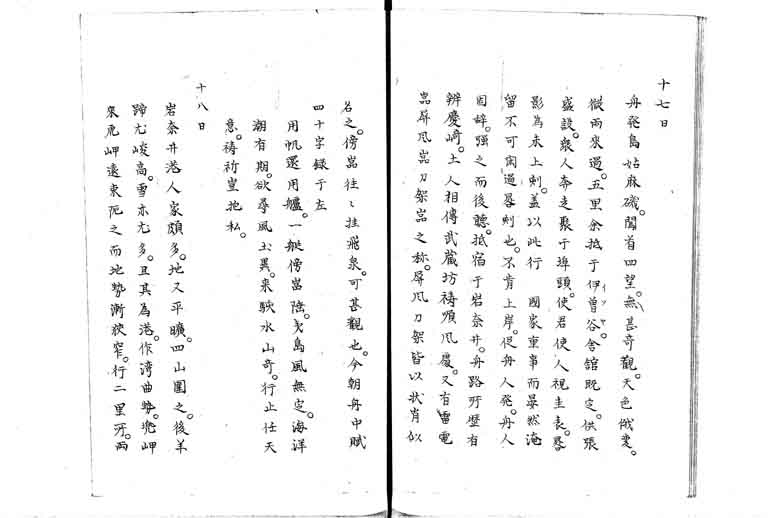 十七日
舟發島姑麻磯。聞首四望。無甚奇觀。天色俄變。
微雨來過。五里余抵于伊曾谷。舎舘既定。供張
盛設。衆人奔走聚于埠頭。使君使人視圭表。晷
影為未上刺。盖以此行 國家重事而晏然淹
留不可闲過晷刺也。不肯上岸。促舟人発。舟人
固辞。强之而後聽。抵宿于岩奈井。舟路所歴有
辨慶﨑。土人相傳武蔵坊祷順風處。又有雷電
嵓屏風嵓刀架嵓之称。屏風刀架皆以状肖似
名之。傍嵓往〻挂飛泉。可甚觀也。今朝舟中賦
四十字録于左
用帆還用艫。一艇傍嵓陰。夷島風無定。海洋
潮有期。欲尋風𡈽異。来駛水山奇。行止任天
意。祷祈豈抱私。
十八日
岩奈井港人家頗多。地又平曠。四山圍之。後羊
蹄尤峻高。雪亦尤多。且其為港。作湾曲勢。兠岬
來尾岬遠東北之而地勢漸狹窄。行二里牙。雨